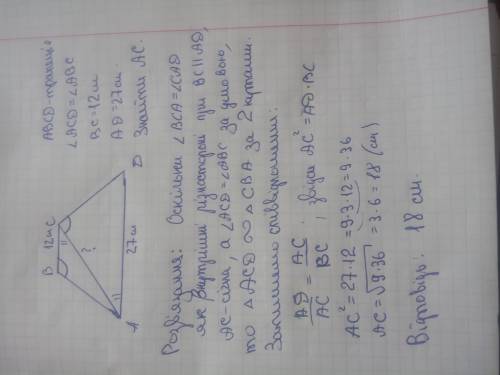 ABCD-трапеція
∠ACD=∠ABC
BC=12см
AD=27см.
Знайти AC.
B 12см C
?
A 27см D
Розв'язання: Оскільки ∠BCA=∠CAD
як внутрішні різносторонні при BC||AD,
AC-січна, а ∠ACD=∠ABC за умовою,
то △ACD ∾ △CBA за 2 кутами.
Запишемо співвідношення:
AD/AC = AC/BC ; звідси AC²=AD·BC
AC²=27·12=9·3·12=9·36
AC=√9·36=3·6=18 (см)
Відповідь: 18 см.